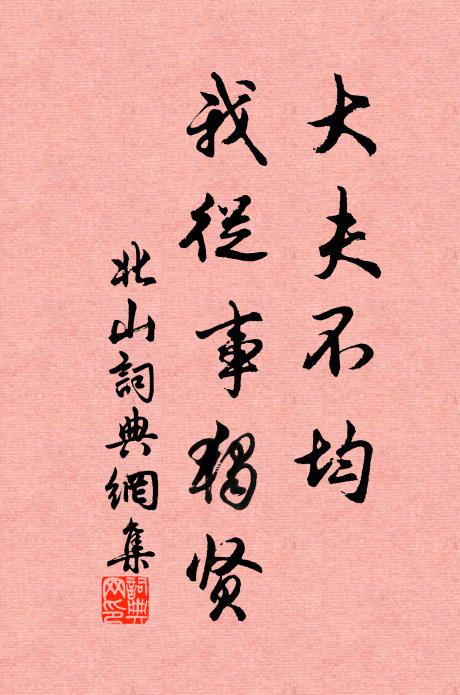 大夫不均
我從事獨贤
北山詞典網集
詞典网印